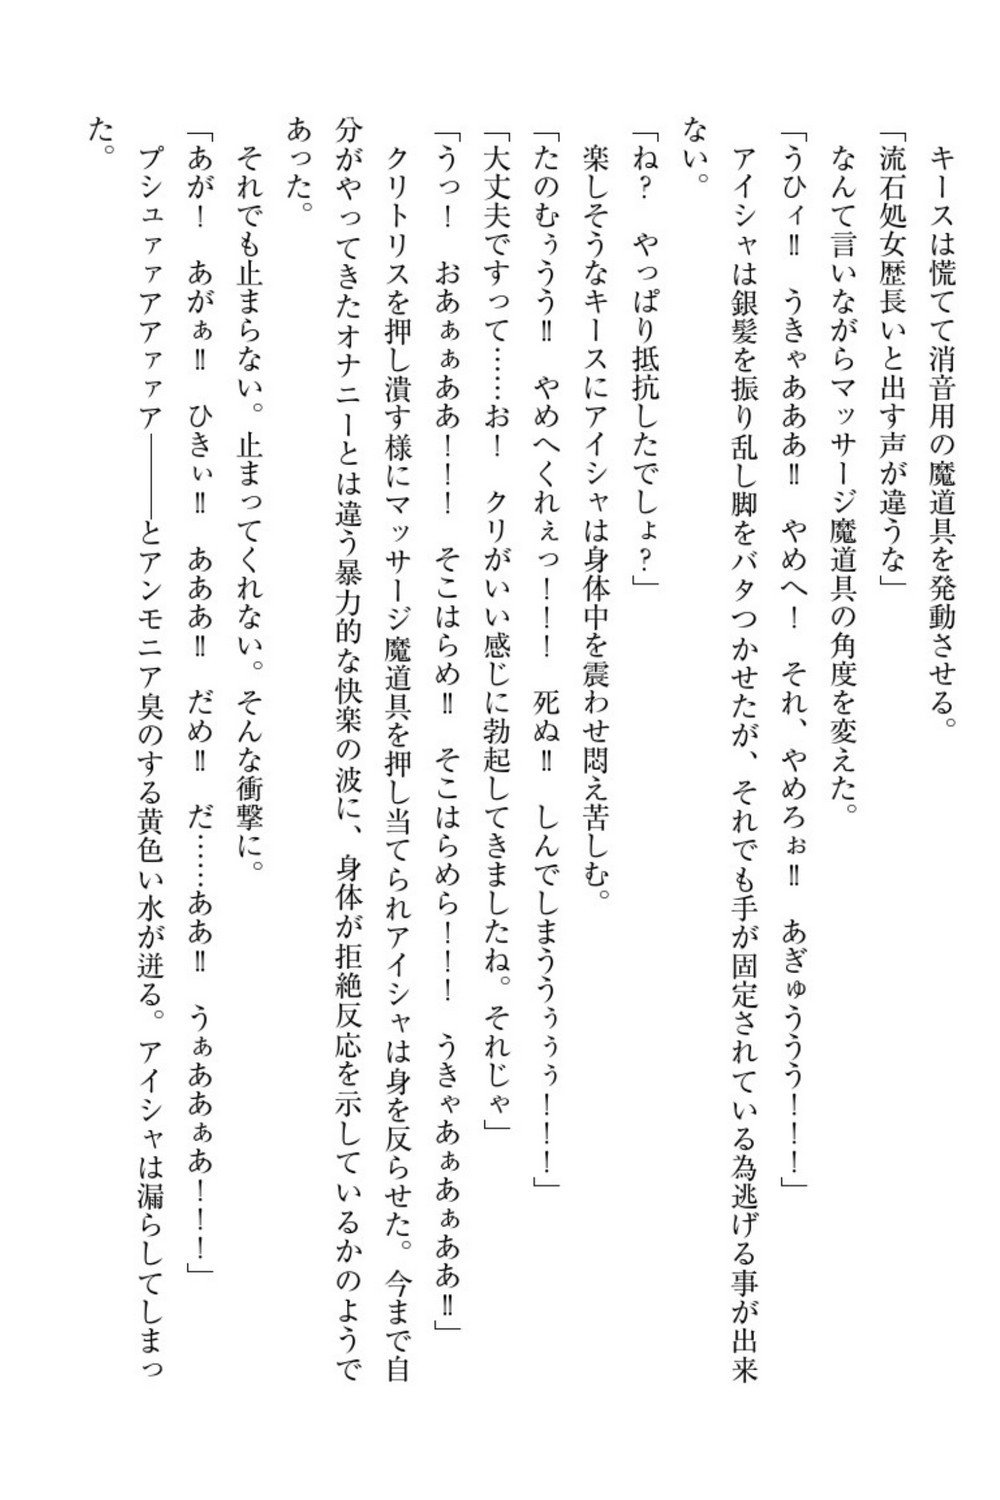 キースは慌てて消音用の魔道具を発動させる。
「流石処女歴長いと出す声が違うな」
なんて言いながらマッサージ魔道具の角度を変えた。
「うひィ‼　うきゃあああ‼　やめへ！　それ、やめろぉ‼　あぎゅううう！！！」
アイシャは銀髪を振り乱し脚をバタつかせたが、それでも手が固定されている為逃げる事が出来
ない。
「ね？　やっぱり抵抗したでしょ？」
楽しそうなキースにアイシャは身体中を震わせ悶え苦しむ。
「たのむぅうう‼　やめへくれぇっ！！！　死ぬ‼　しんでしまううぅぅぅ！！！」
「大丈夫ですって……お！　クリがいい感じに勃起してきましたね。それじゃ」
「うっ！　おあぁぁああ！！！　そこはらめ‼　そこはらめら！！！　うきゃあぁあぁああ‼」
クリトリスを押し潰す様にマッサージ魔道具を押し当てられアイシャは身を反らせた。今まで自
分がやってきたオナニーとは違う暴力的な快楽の波に、身体が拒絶反応を示しているかのようで
あった。
それでも止まらない。止まってくれない。そんな衝撃に。
「あが！　あがぁ‼　ひきぃ‼　あああ‼　だめ‼　だ……ああ‼　うぁああぁあ！！！」
プシュァァアアァァア――――とアンモニア臭のする黄色い水が迸る。アイシャは漏らしてしまっ
た。